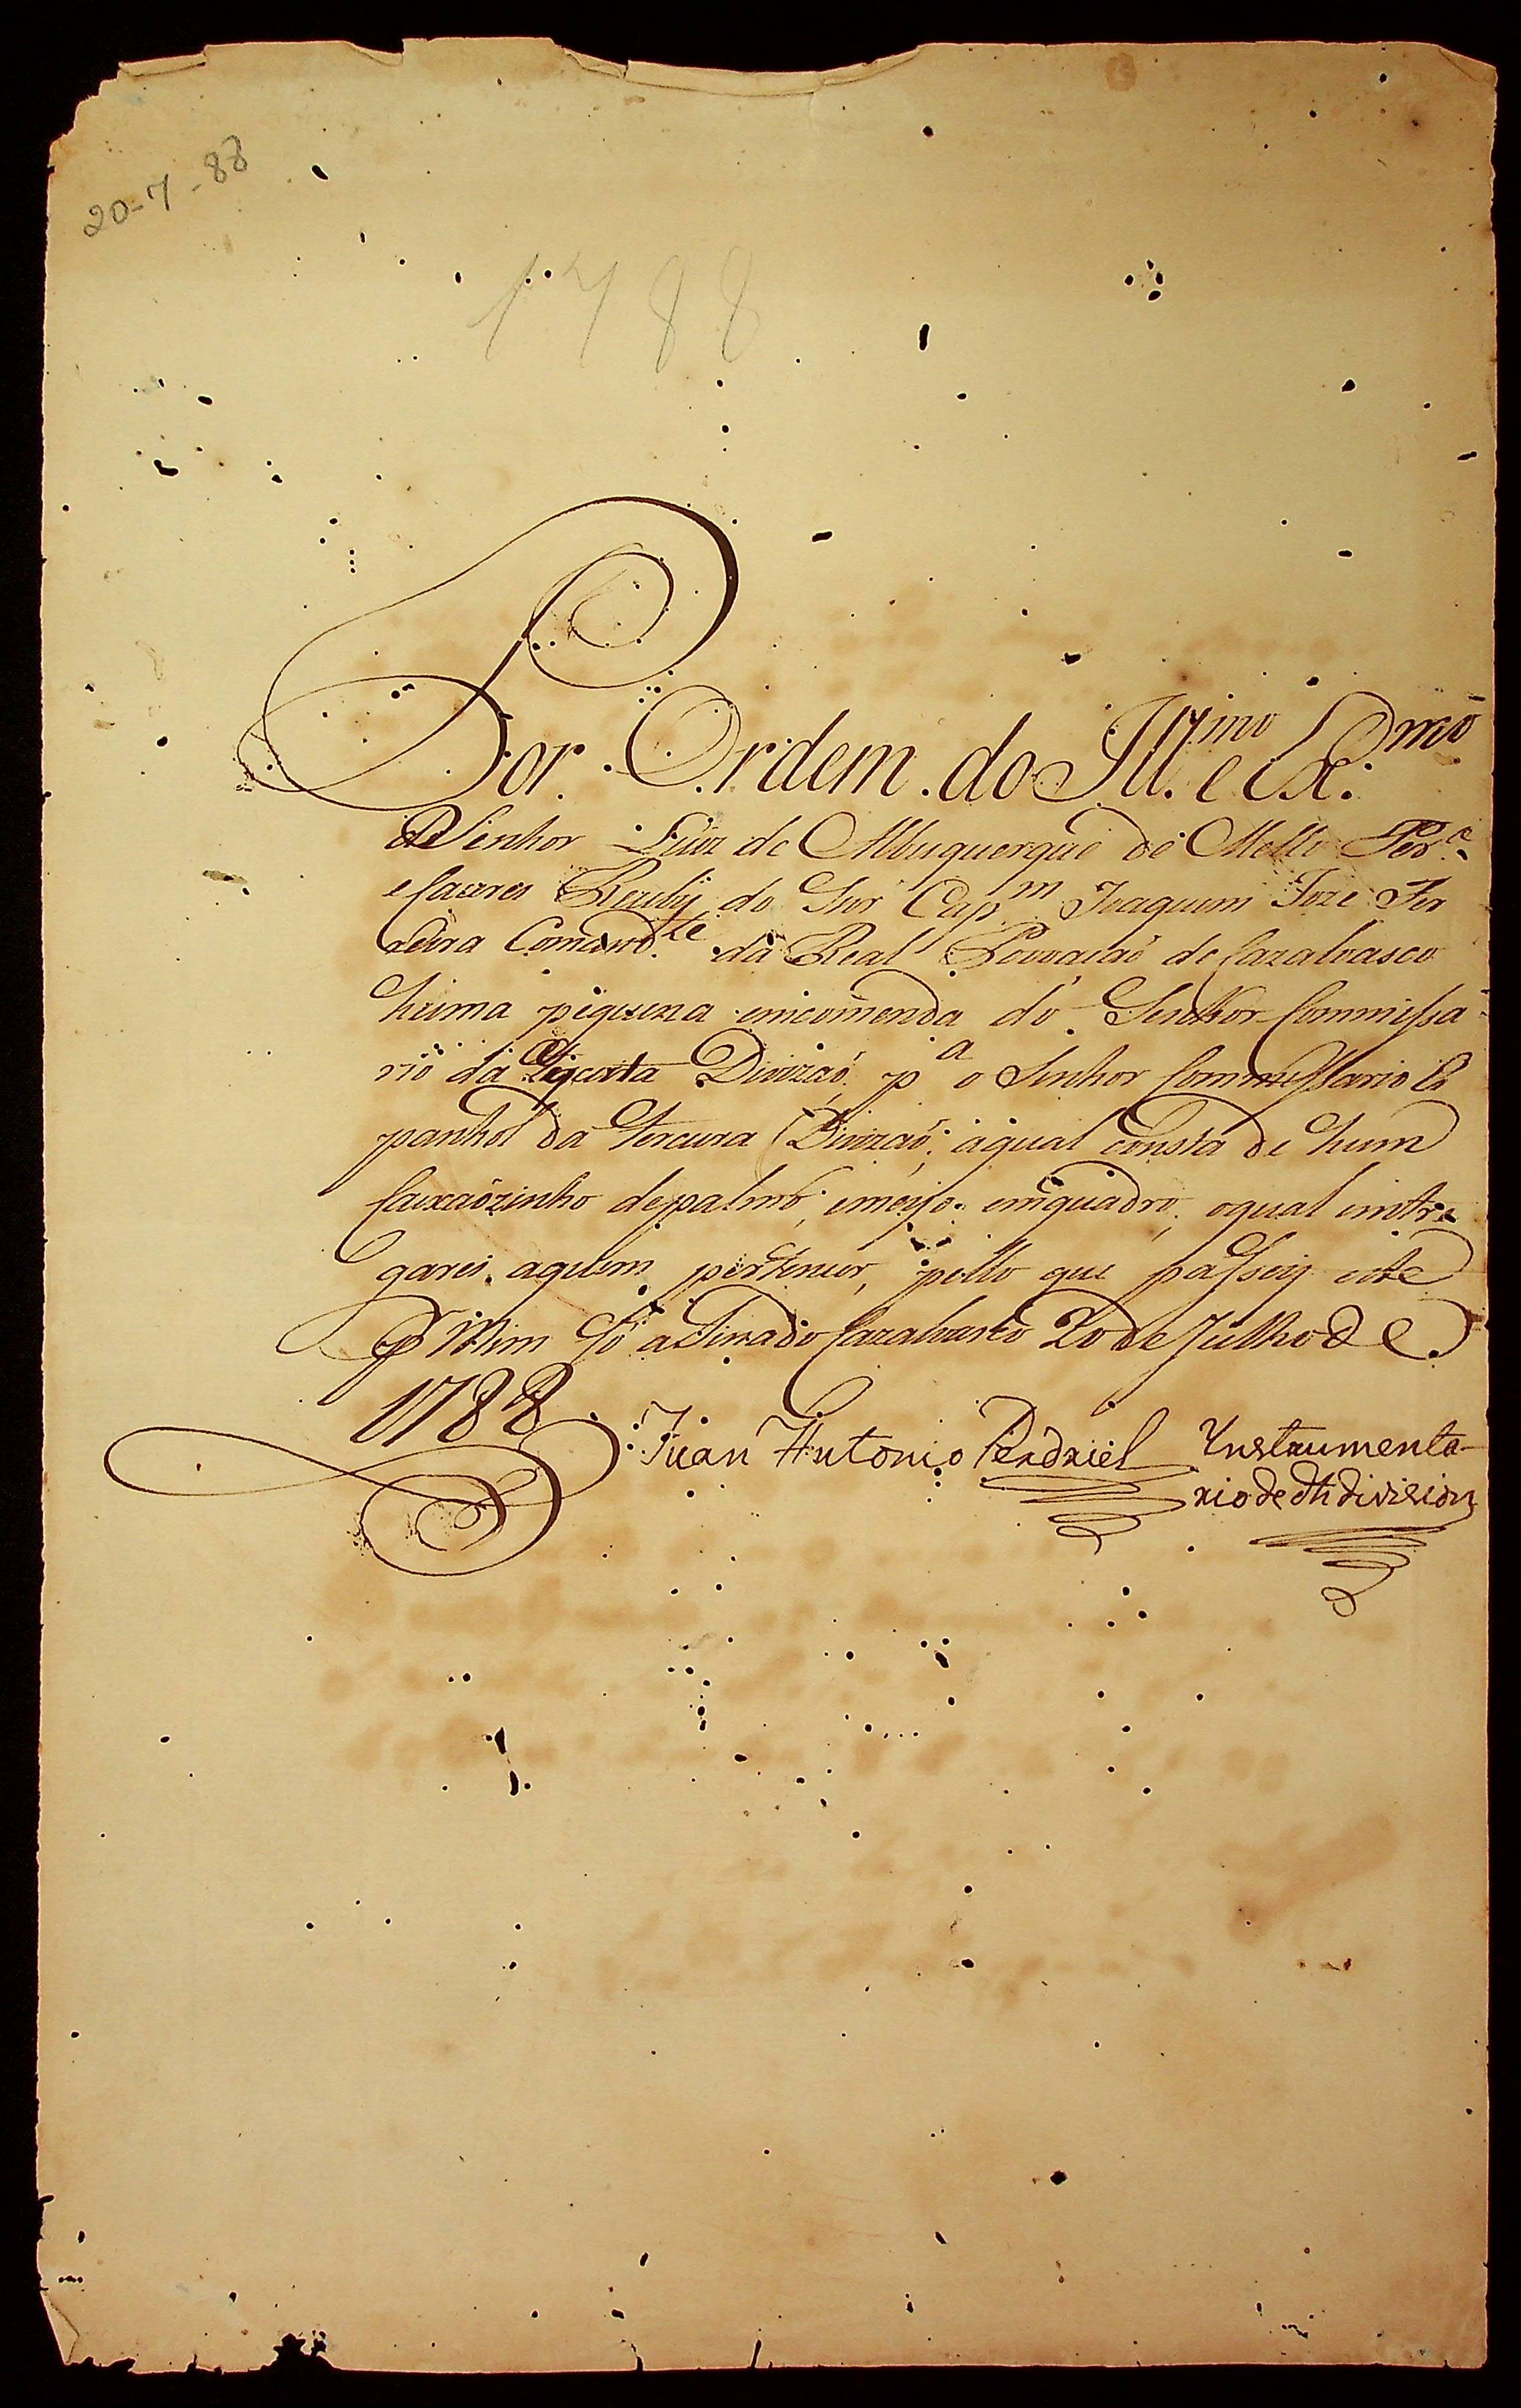 20-7-88
1788
Por Ordem do Ill.mo e Ex.mo
Senhor Luiz de Albuquerque de Mello Per.a
e Caceres Recibÿ do Snr Cap.m Joaquim Joze Fer
reira Comand.te da Real Povoação de Cazalvasco
huma piquena emcomenda do Senhor Commissa
rio da Divizaõ, p.a o Senhor Commissario Es
panhol da terceira Divizaõ; aqual consta de hum
Caixaõzinho depalmo, emeyo emquadro, oqual emtre
garei aquem pertencer, pello que passey este
P Mim só asinado Cazalvasco 20 de Julho de
1788
Juan Antonio Perdriel Ynstrumenta-
rio de dha division